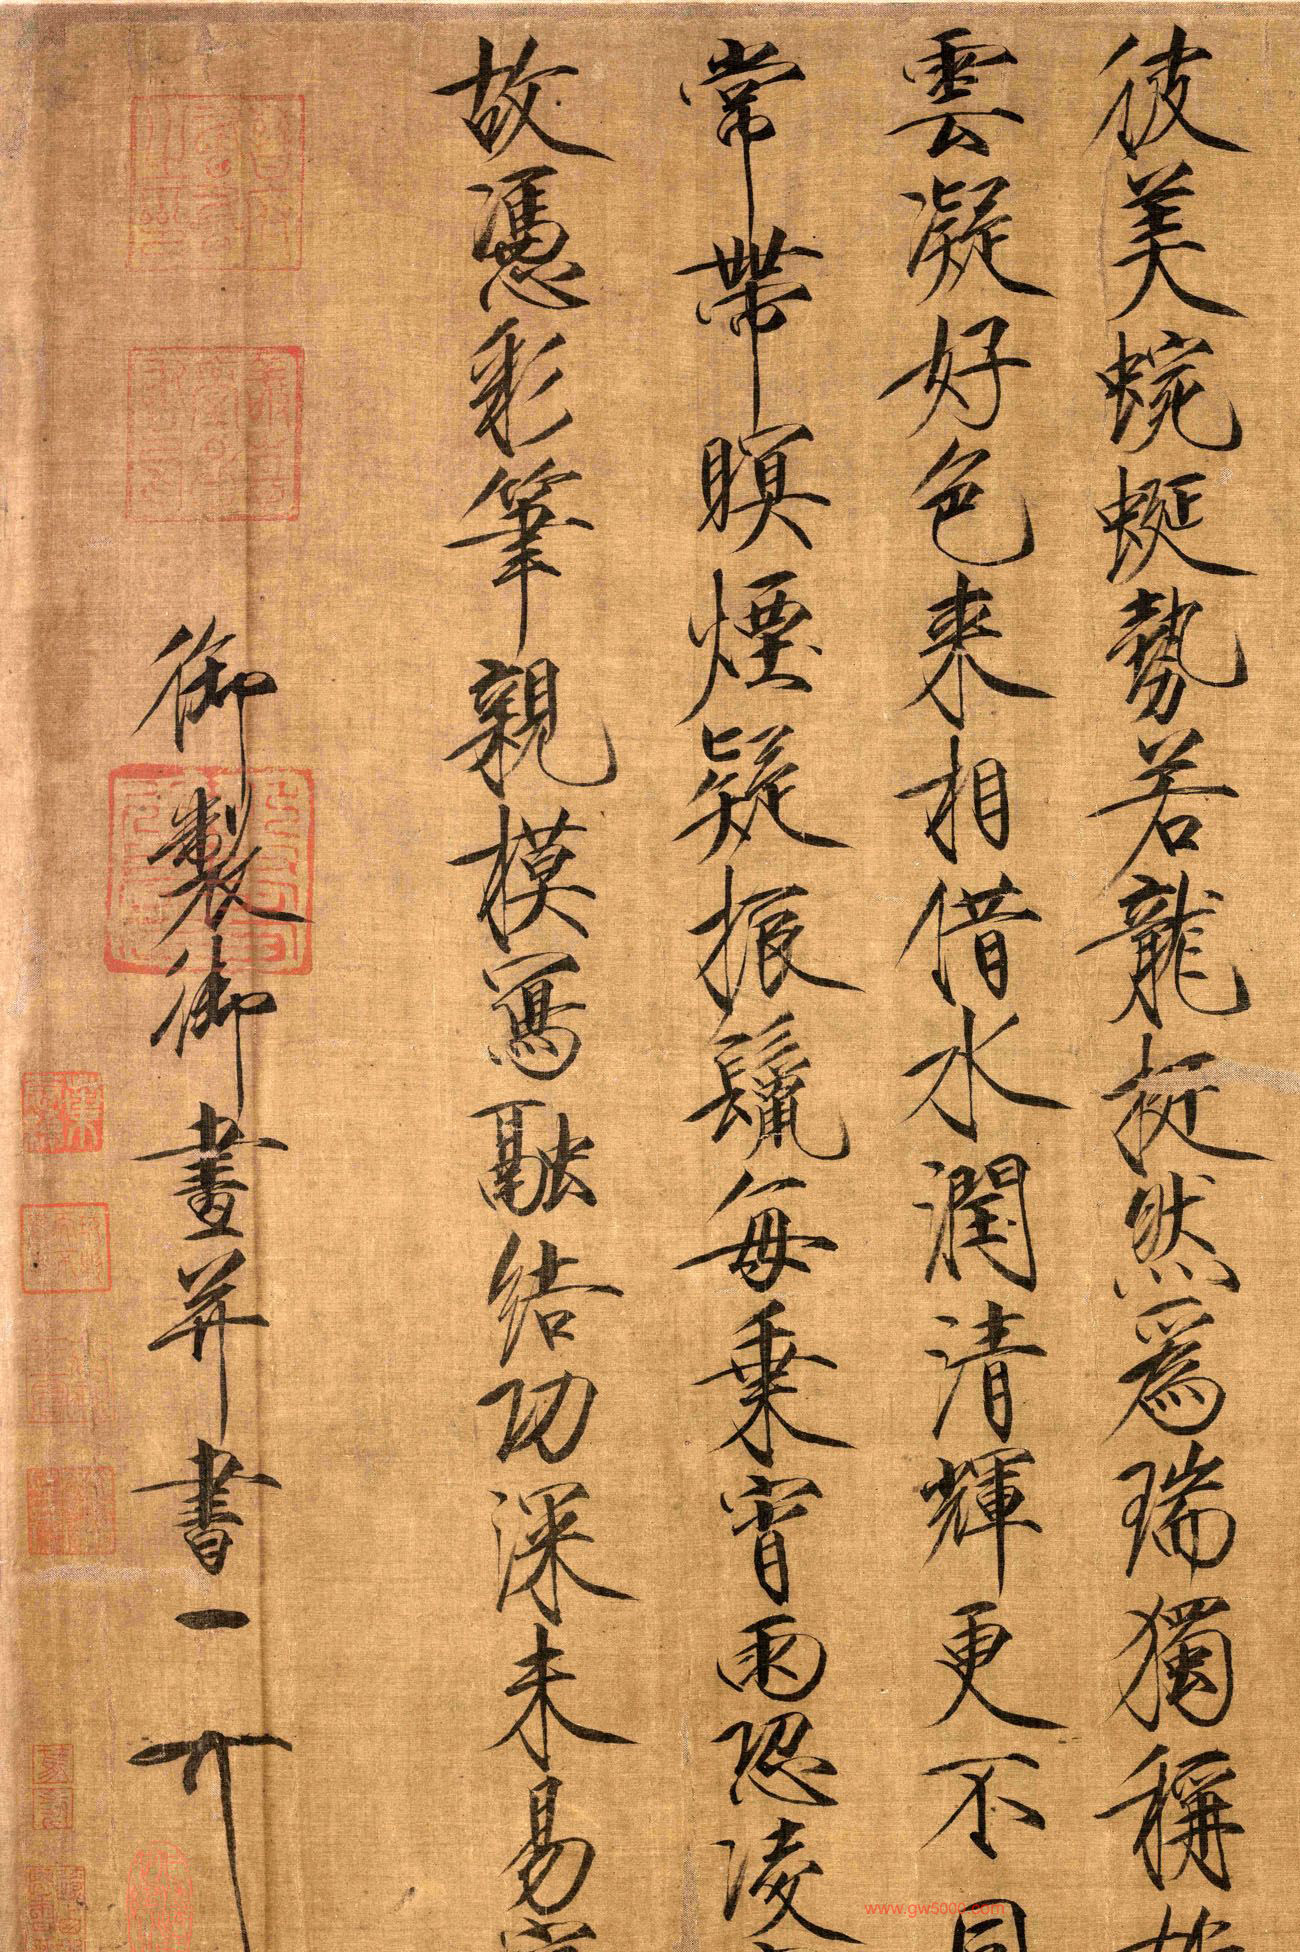 彼美蜿蜒勢若龍挺然爲瑞獨稱
雲凝好色來相借水潤清輝更不同
常帶暝煙疑振鬣每乘宵雨恐凌
故憑彩筆親模寫融結功深未易
御製御畫并書
www.gw5000.com